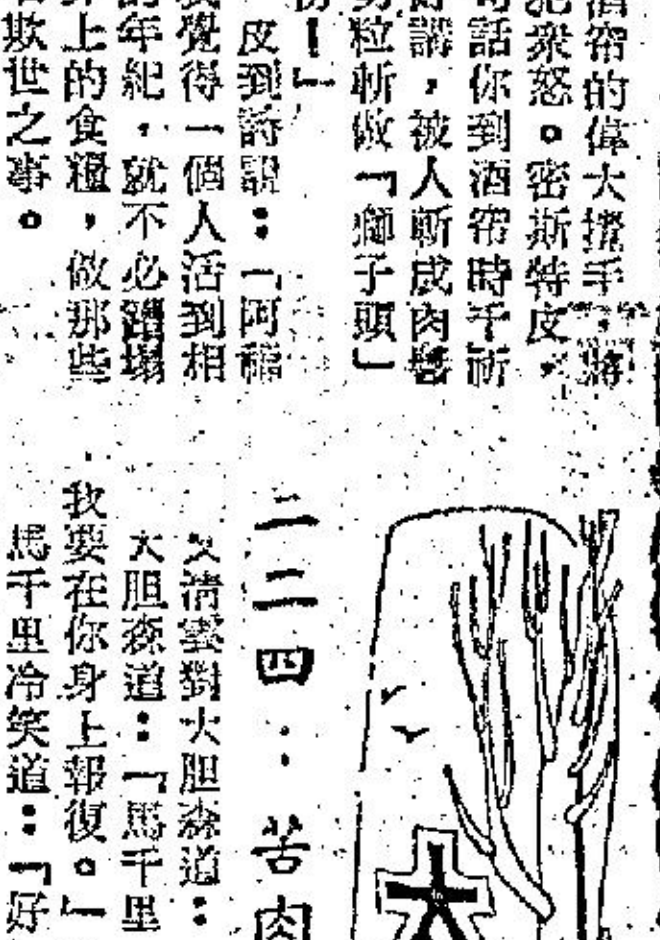 酒帘的偉大擋手，將
犯衆怒。密斯特皮，
句話你到酒帘時千祈
好講，被人斬成肉醬
切粒斬做「獅子頭」
物！」
皮到詩說：「阿福
我覺得一個人活到相
的年紀，就不必蹧塌
界上的食糧，做那些
名欺世之事。
大
二二四：苦肉
又清雲對大胆森道：
大胆森道：「馬千里
我要在你身上報復。」
馬千里冷笑道：「好